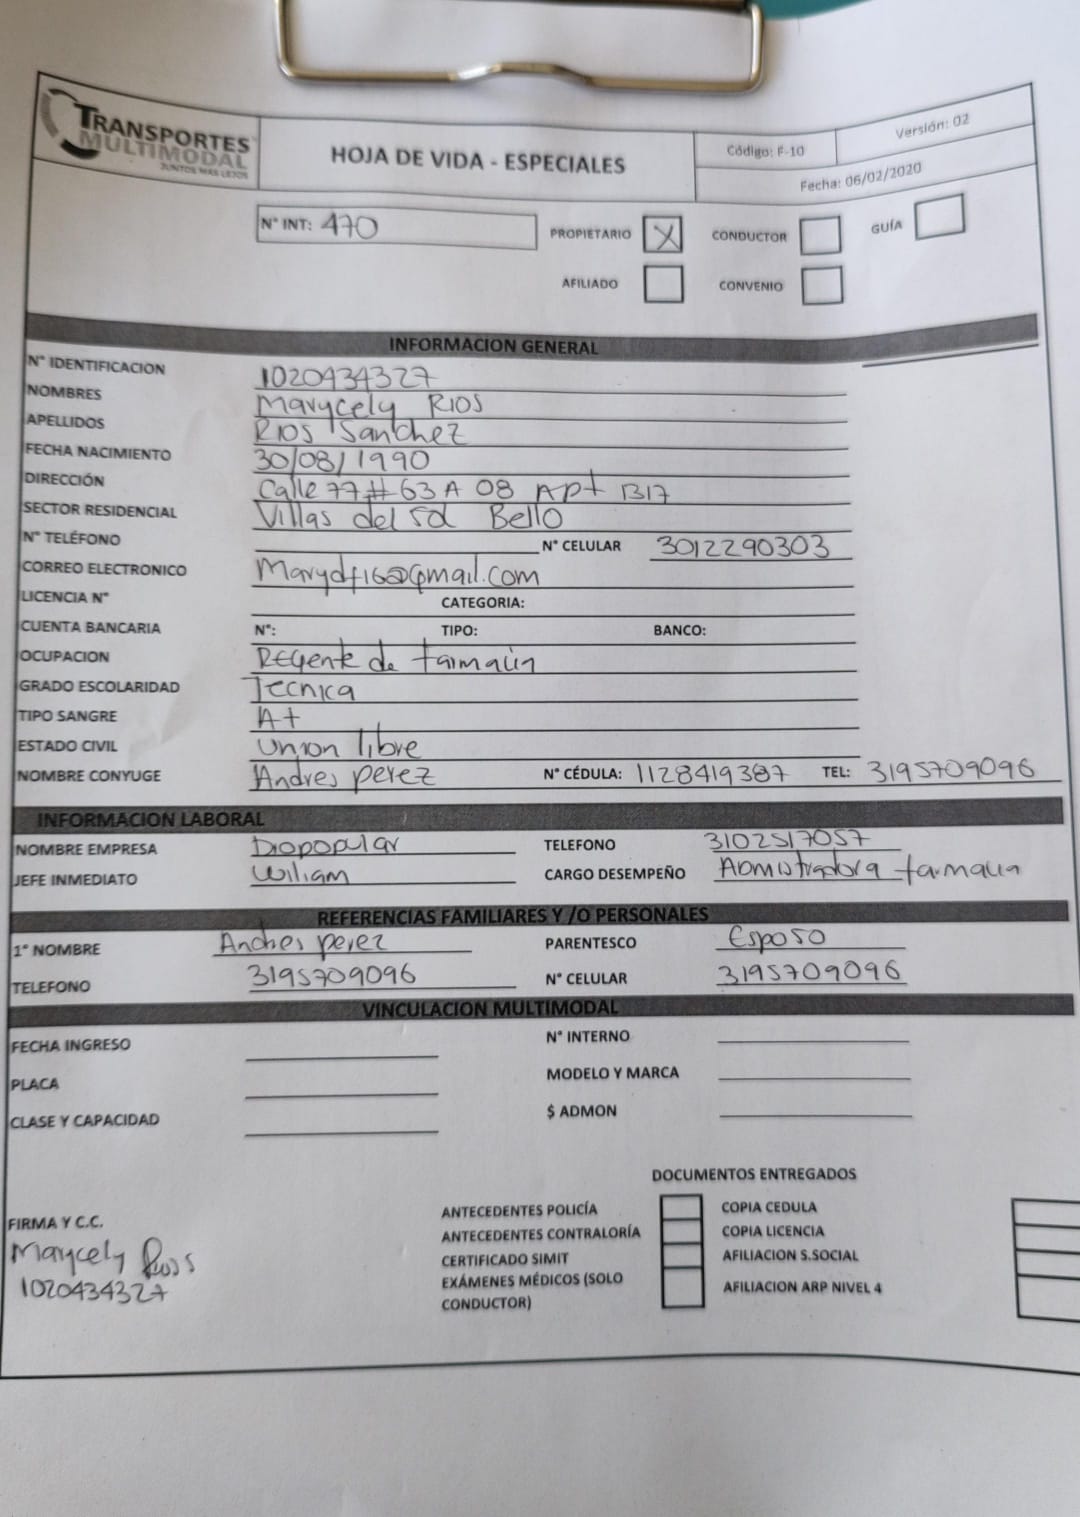 TRANSPORTES
MULTIMODAL
JUNTOS MAS LEJOS
HOJA DE VIDA - ESPECIALES
Código: F-10
Versión: 02
Fecha: 06/02/2020
N° INT: 470
PROPIETARIO X CONDUCTOR GUÍA
AFILIADO CONVENIO
INFORMACION GENERAL
N° IDENTIFICACION 1020434327
NOMBRES Marycely RIOS
APELLIDOS RIOS Sanchez
FECHA NACIMIENTO 30/08/1990
DIRECCIÓN Calle 77 # 63 A 08 Apt 1317
SECTOR RESIDENCIAL Villas del sol Bello
N° TELÉFONO N° CELULAR 3012290303
CORREO ELECTRONICO Marydf16@gmail.com
LICENCIA N° CATEGORIA:
CUENTA BANCARIA N°: TIPO: BANCO:
OCUPACION Regente de farmacia
GRADO ESCOLARIDAD Tecnica
TIPO SANGRE A+
ESTADO CIVIL Union libre
NOMBRE CONYUGE Andres perez N° CÉDULA: 1128419387 TEL: 3195709096
INFORMACION LABORAL
NOMBRE EMPRESA Dropopular TELEFONO 3102517057
JEFE INMEDIATO Wiliam CARGO DESEMPEÑO Admistradora farmacia
REFERENCIAS FAMILIARES Y /O PERSONALES
1° NOMBRE Andres perez PARENTESCO Esposo
TELEFONO 3195709096 N° CELULAR 3195709096
VINCULACION MULTIMODAL
FECHA INGRESO N° INTERNO
PLACA MODELO Y MARCA
CLASE Y CAPACIDAD $ ADMON
DOCUMENTOS ENTREGADOS
ANTECEDENTES POLICÍA COPIA CEDULA
ANTECEDENTES CONTRALORÍA COPIA LICENCIA
CERTIFICADO SIMIT AFILIACION S.SOCIAL
EXÁMENES MÉDICOS (SOLO CONDUCTOR) AFILIACION ARP NIVEL 4
FIRMA Y C.C.
Marycely Rios
1020434327